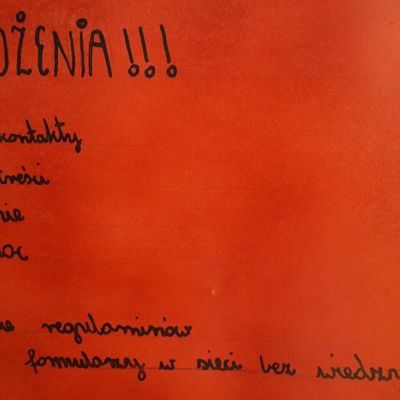 OŻENIA!!!
kontakty
treści
nie
moc
ie regulaminów
formularzy w sieci bez wiedzy